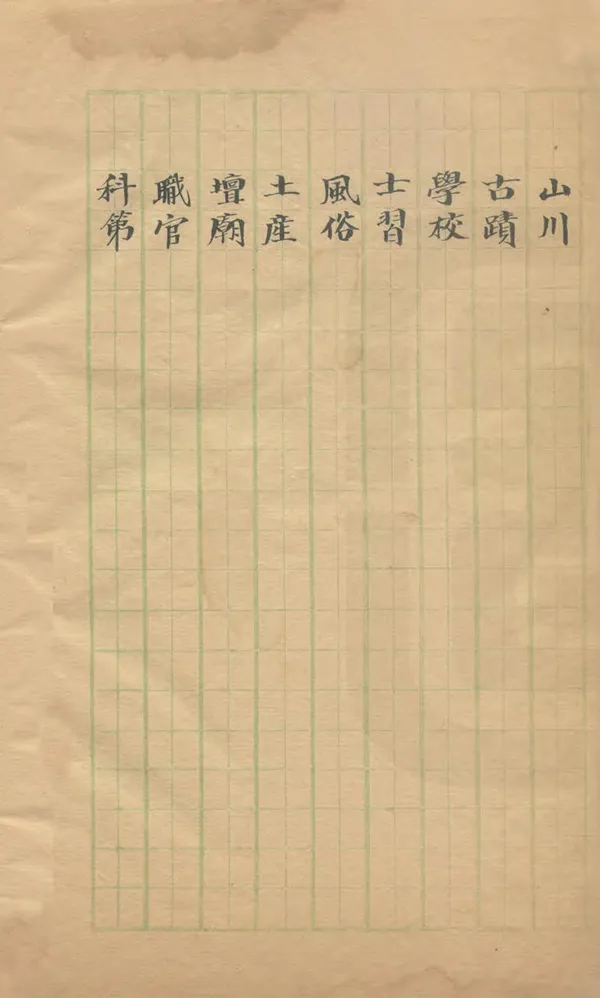 山川
古蹟
學校
士習
風俗
土産
壇廟
職官
科第